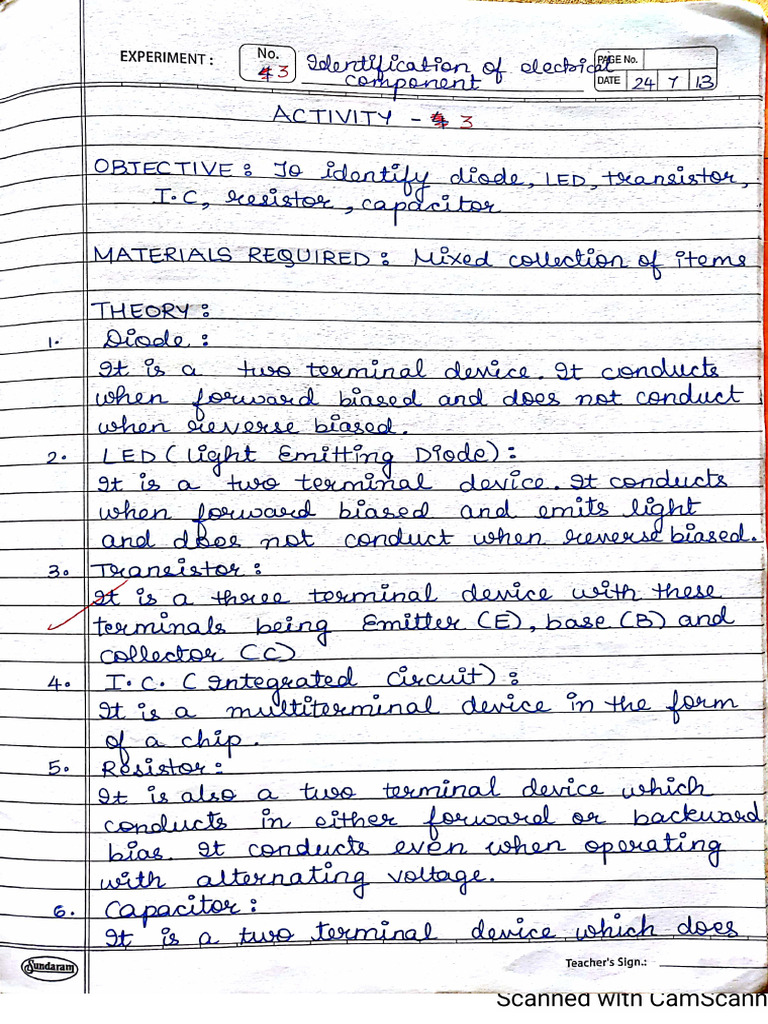 EXPERIMENT : No. 3 Identification of electrical component
PAGE No.
DATE 24 7 13
ACTIVITY - 3
OBJECTIVE : To identify diode, LED, transistor,
I.C, resistor, capacitor
MATERIALS REQUIRED : Mixed collection of items
THEORY :
1. Diode :
It is a two terminal device. It conducts
when forward biased and does not conduct
when reverse biased.
2. LED (Light Emitting Diode) :
It is a two terminal device. It conducts
when forward biased and emits light
and does not conduct when reverse biased.
3. Transistor :
It is a three terminal device with these
terminals being Emitter (E), base (B) and
collector (C)
4. I.C. (Integrated Circuit) :
It is a multiterminal device in the form
of a chip.
5. Resistor :
It is also a two terminal device which
conducts in either forward or backward
bias. It conducts even when operating
with alternating voltage.
6. Capacitor :
It is a two terminal device which does
Sundaram
Teacher's Sign.:
Scanned with CamScann